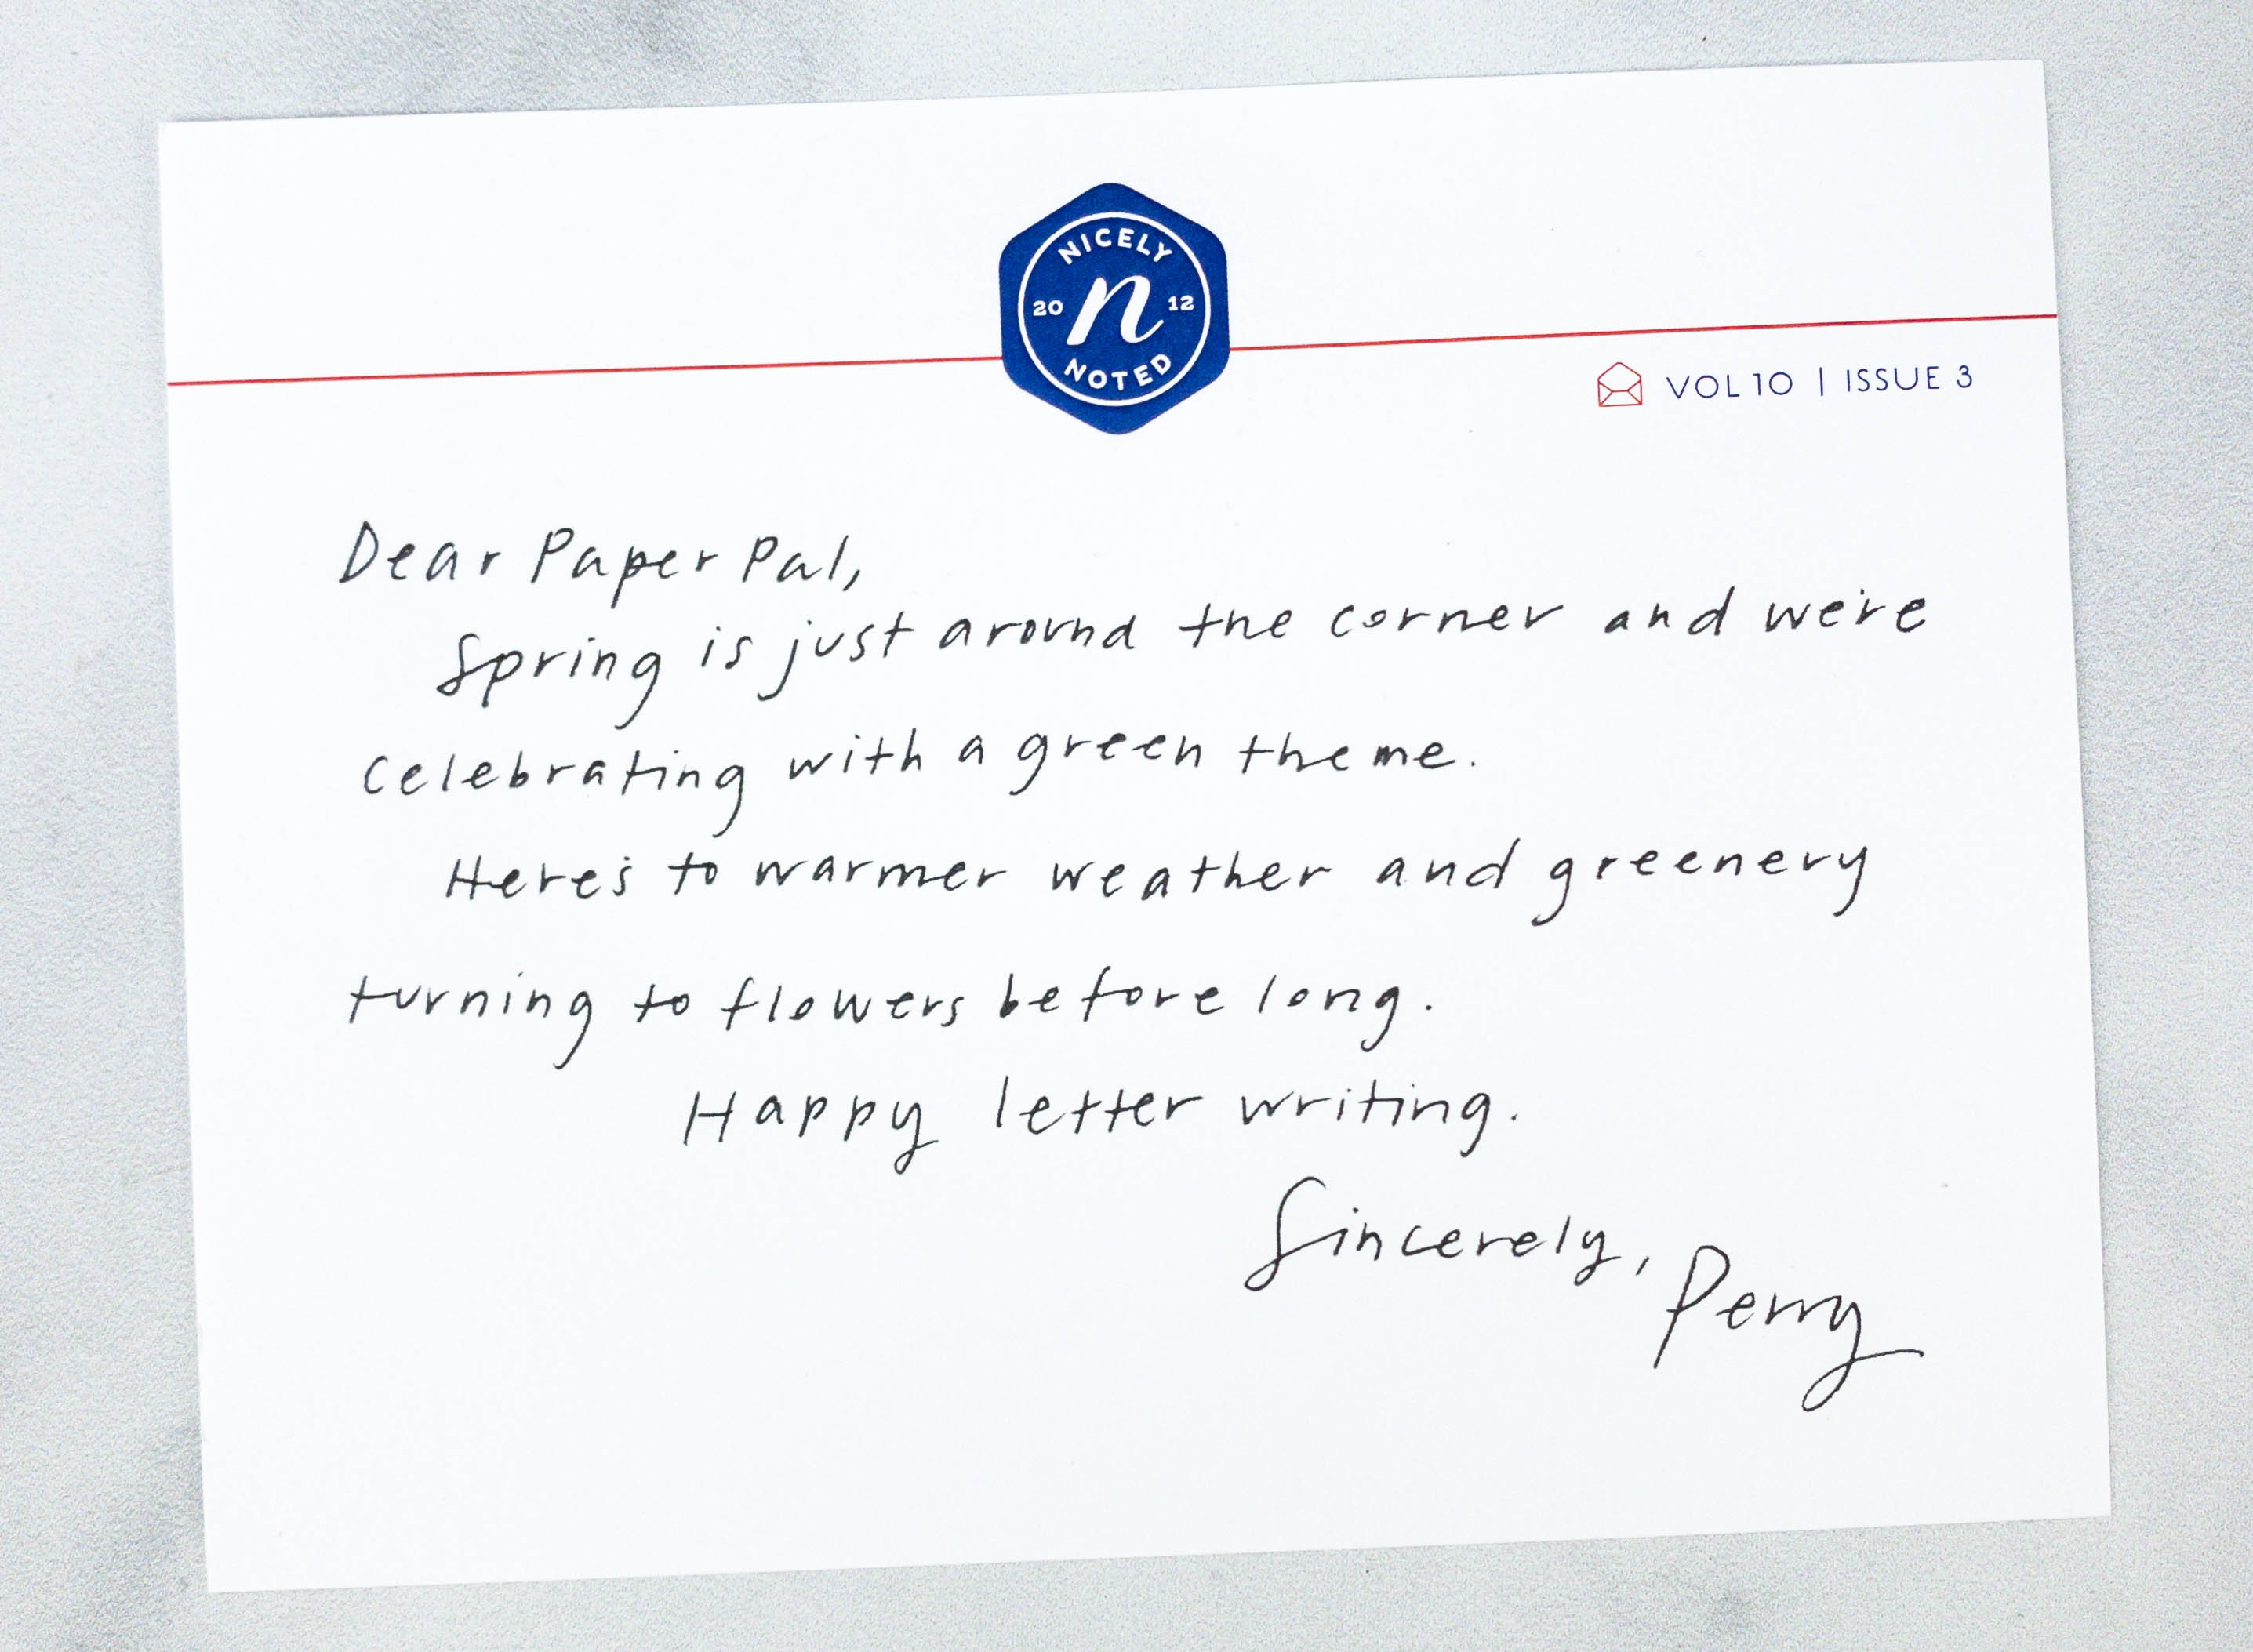 NICELY
20 n 12
NOTED
VOL 10 | ISSUE 3
Dear Paper Pal,
Spring is just around the corner and we're
celebrating with a green theme.
Here's to warmer weather and greenery
turning to flowers before long.
Happy letter writing.
Sincerely,
Perry